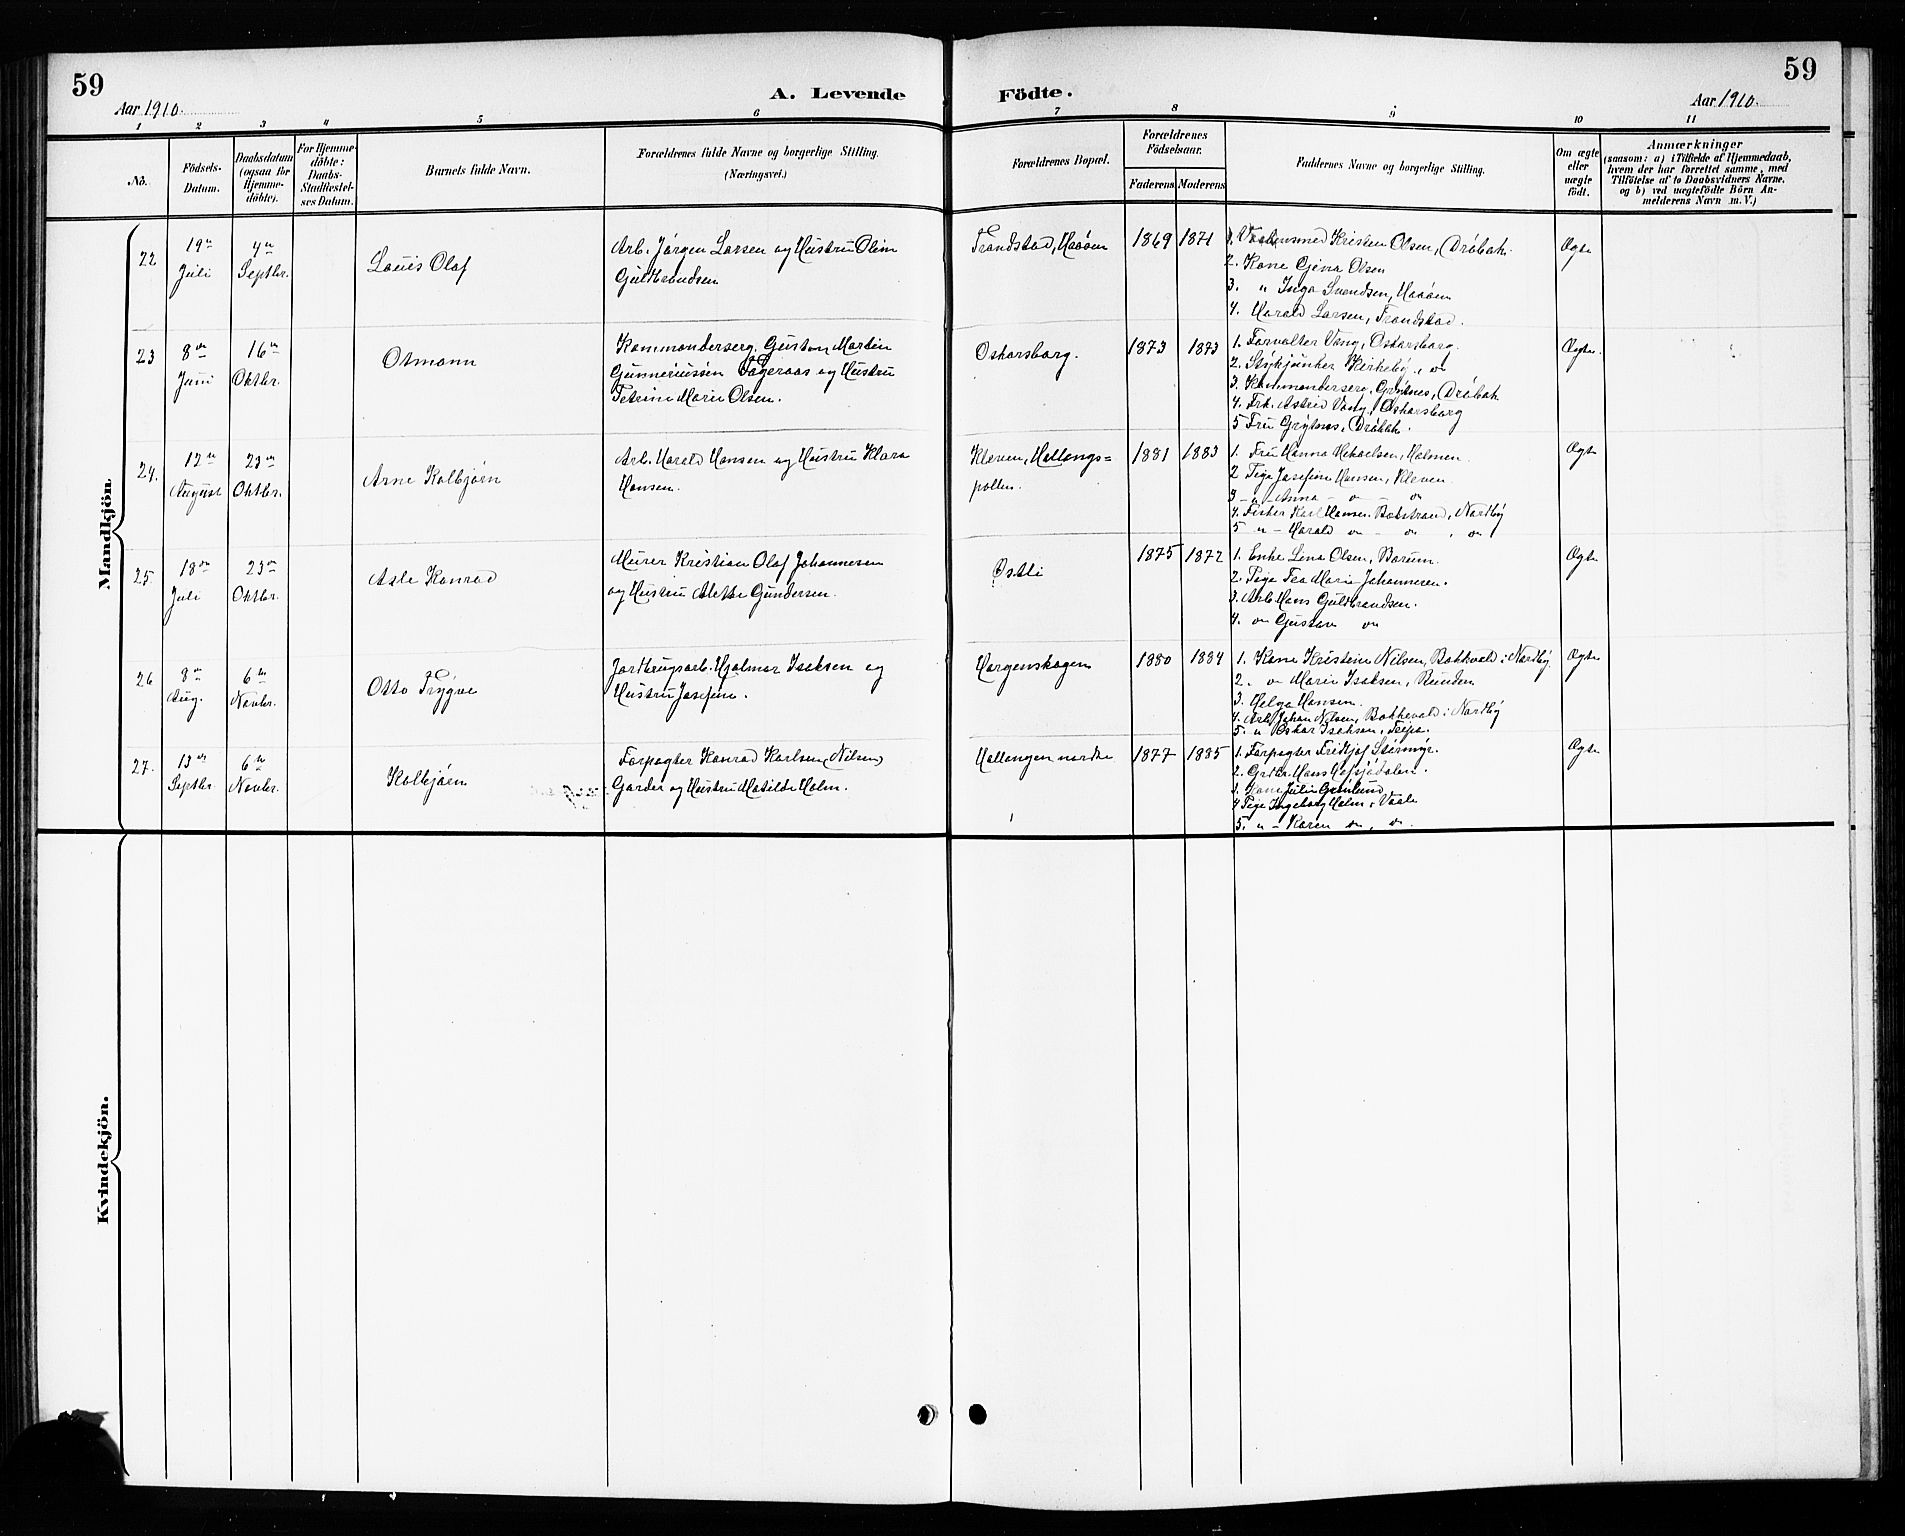 59
Aar 1910.
A. Levende
Födte.
Aar 1910.
59
1 2 3 4 5 6 7 8 9 10 11
No.
Födsels-
Datum.
Daabsdatum
(ogsaa för
Hjemme-
döbte).
For Hjemme-
döbte:
Daabs-
Stadfæstel-
ses Datum.
Barnets fulde Navn.
Forældrenes fulde Navne og borgerlige Stilling.
(Næringsvei.)
Forældrenes Bopæl.
Forældrenes
Födselsaar.
Faderens Moderens
Faddernes Navne og borgerlige Stilling.
Om ægte
eller
uægte
födt.
Anmærkninger
(saasom: a) i Tilfælde af Hjemmedaab,
hvem der har forrettet samme, med
Tilföielse af to Daabsvidners Navne,
og b) ved uægtefödte Börn An-
melderens Navn m. V.)
Mandkjön
22
19de
Juli
4de
Septbr.
Louis Olaf
Arb. Jørgen Larsen og Hustru Oline
Guldbrandsen
Trondstad, Haaøen
1869 1871
1. Kristen Olsen, Drøbak.
2. Kone Gjina Olsen
3. " Inga Svendsen, Haaøen
4. Harald Larsen, Trondstad.
Ægte
23
8de
Juni
16de
Oktbr.
Otmann
Kommandersерg. Gustav Martin
Gunneriussen Fageraas og Hustru
Petrine Marie Olsen.
Oskarsborg.
1873 1873
1. Forvalter Vang, Oskarsborg.
2. Stykjunker Kirkeby, do
3. Kommandersерg. Grytnes, Drøbak
4. Frk. Astrid Vang, Oskarsborg
5 Fru Grytnes, Drøbak.
Ægte.
24.
12te
August
23de
Oktbr.
Arne Kolbjørn
Arb. Harald Hansen og Hustru Klara
Hansen.
Kleven, Hallangs=
pollen.
1881 1883
1. Fru Hanna Mikaelsen, Holmen.
2 Pige Josefine Hansen, Kleven.
3 - " - Anna - do - do
4. Fisker Karl Hansen, Nordby
5 " - Harald do - do , do
Ægte
25
18de
Juli
23de
Oktbr.
Asle Konrad
Murer Kristian Olaf Johannesen
og Hustru Alette Gundersen.
Østli
1875 1872
1. Enke Lena Olsen, Bærum.
2. Pige Tea Marie Johannesen.
3. Arb. Hans Guldbrandsen.
4. do Gustav do
Ægte
26
8de
Aug.
6te
Novbr.
Otto Trygve
Jordbrugsarb. Hjalmar Isaksen og
Hustru Josefine.
Horgenskogen
1880 1884
1. Kone Kristine Nilsen, Bakkvald i Nordby.
2. do Marie Isaksen, Bunden
3. Helga Hansen.
4. Arb. Johan Nilsen, Bakkevald i Nordby
5. " Oskar Isaksen,
Ægte
27.
13de
Septbr.
6te
Novbr.
Kolbjørn
Forpagter Konrad Karlsen (Nilsen)
Garder og Hustru Matilde Holm.
Hallangen nordre
1877 1885
1. Forpagter Fridtjof Størmyr.
2. Grdbr. Hans Hofsjødalen.
3. Kone Julie Grønlund
4 Pige Ingeborg Holm, Vaale
5. " - Karen do, do.
Ægte
Kvindekjön.